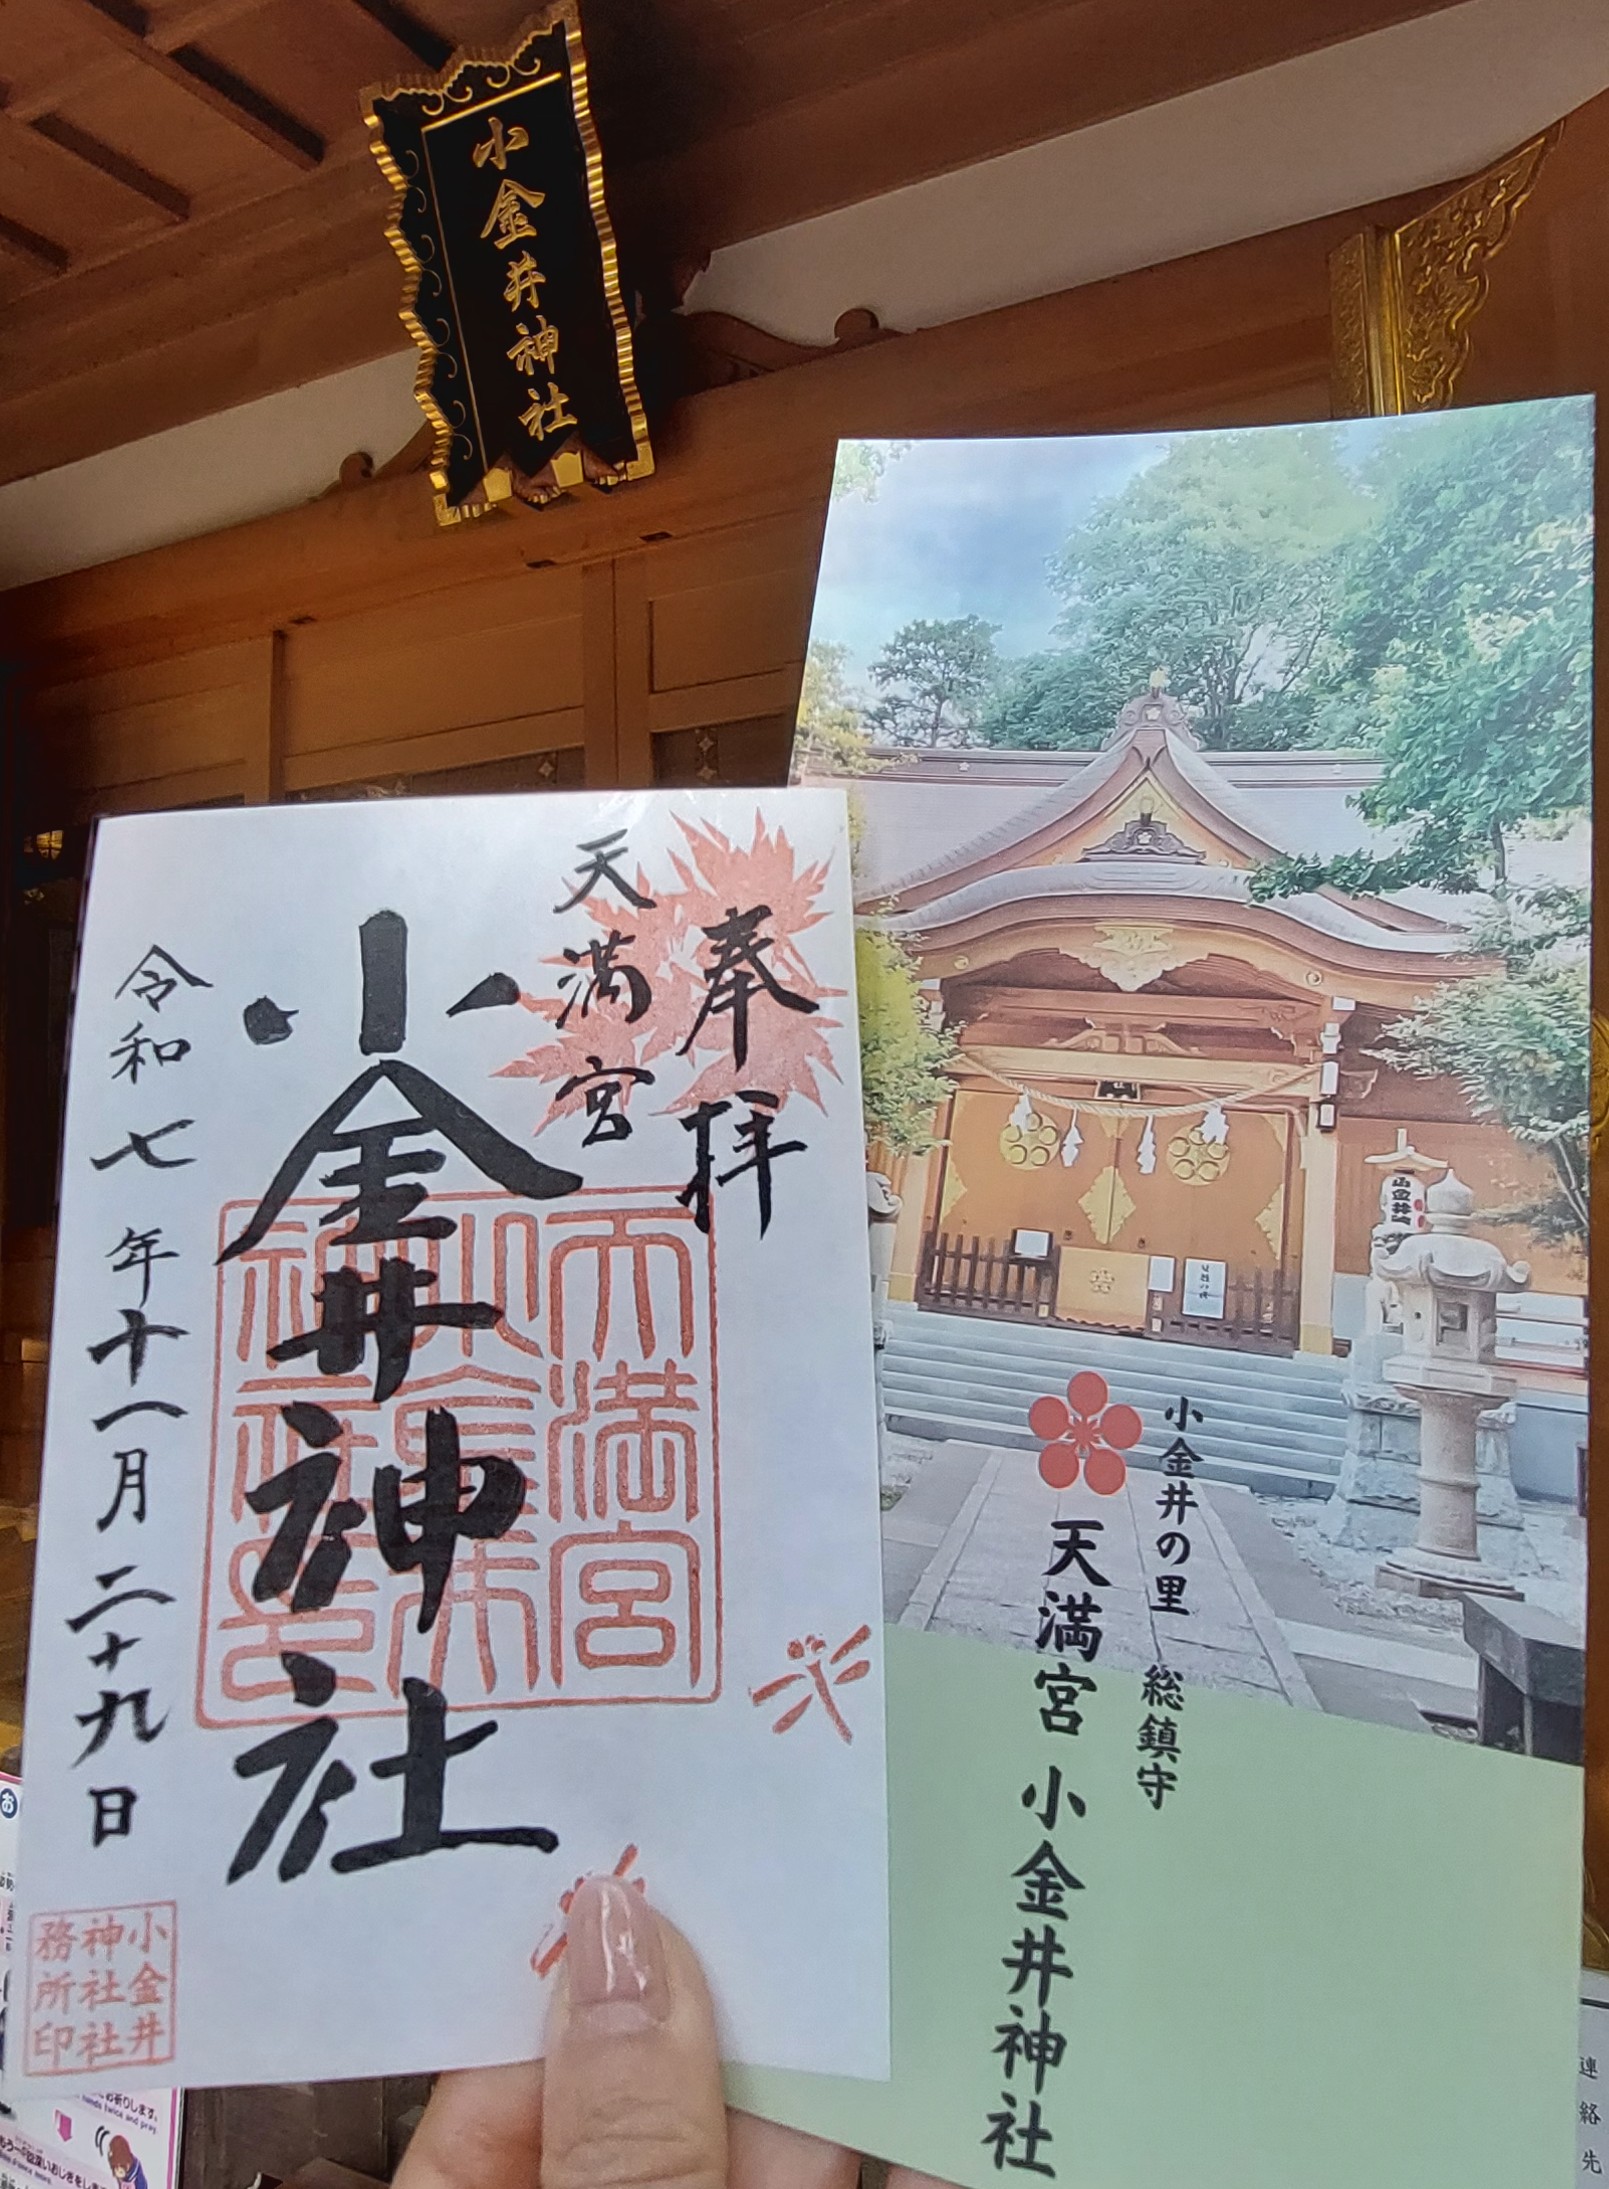 小金井神社
奉拝
天満宮
小金井神社
令和七年十一月二十九日
天満宮
小金井神社
務所印
小金井の里 総鎮守
天満宮 小金井神社
連絡先